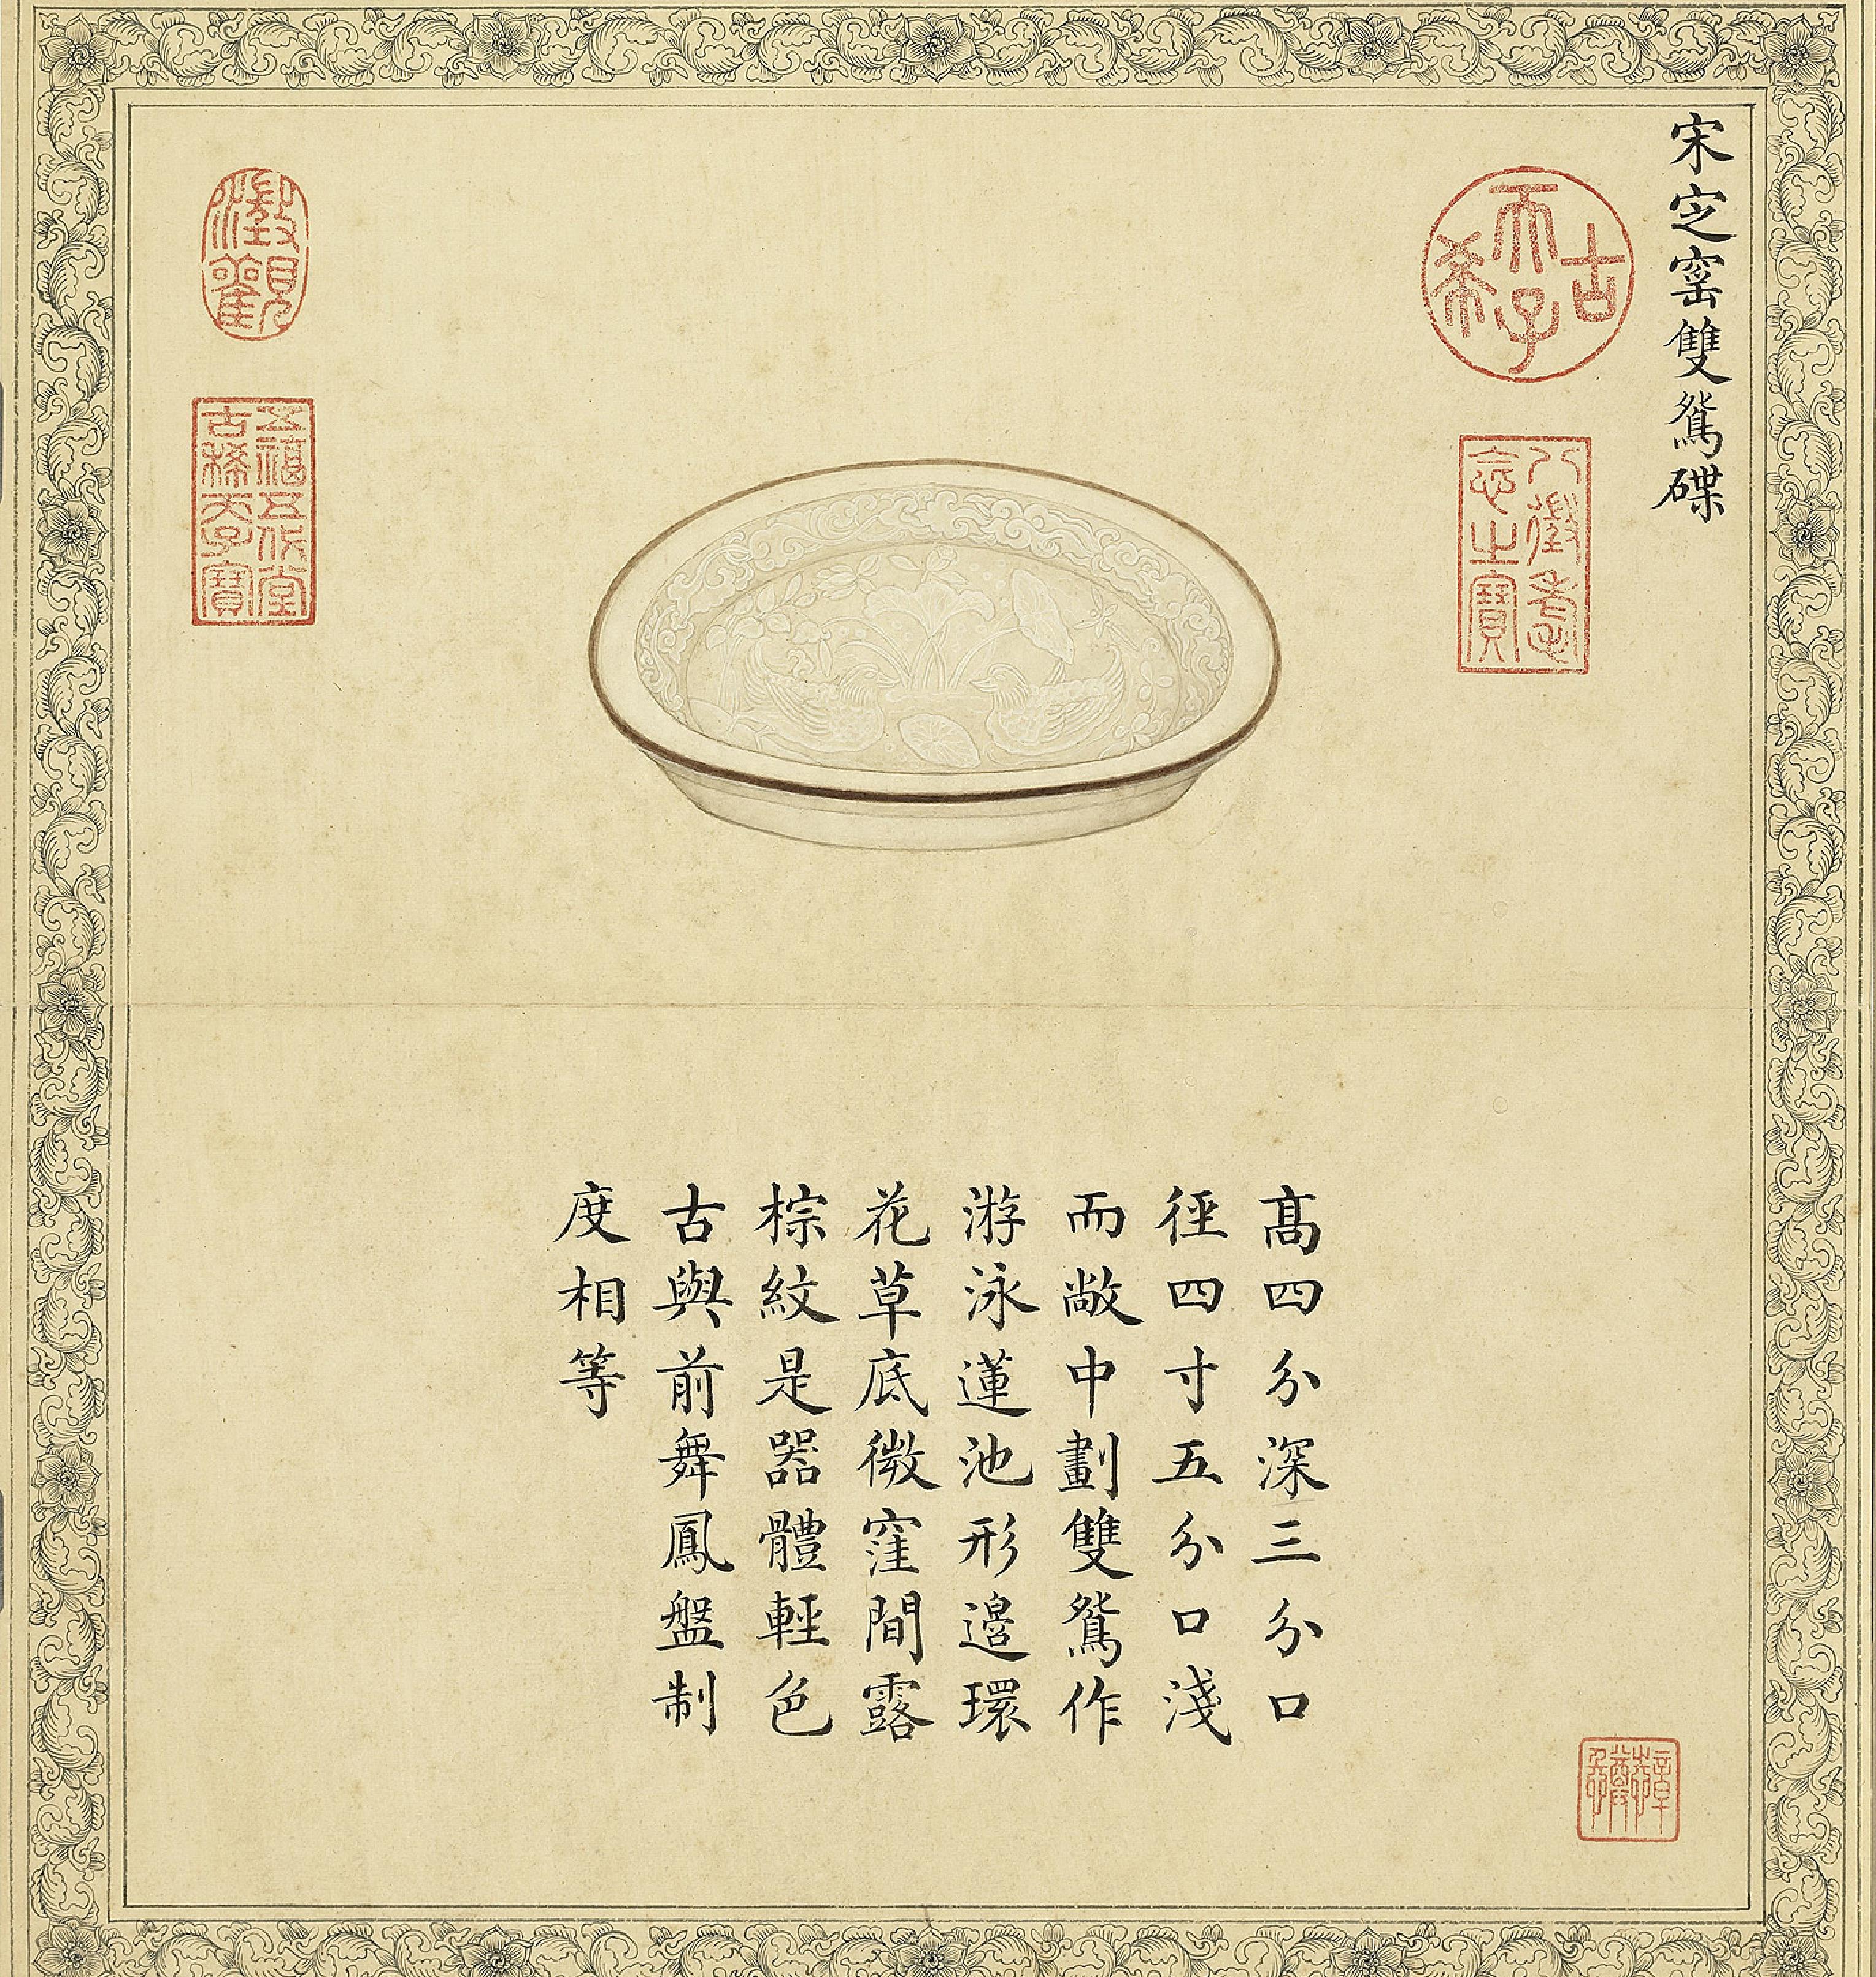 宋㝎窑雙鴛碟
古希天子
八徵耄念之寶
澂觀
五福五代堂
古稀天子寶
髙四分深三分口
徑四寸五分口淺
而敞中劃雙鴛作
游泳蓮池形邊環
花草底微窪間露
棕紋是器體輕色
古與前舞鳳盤制
度相等